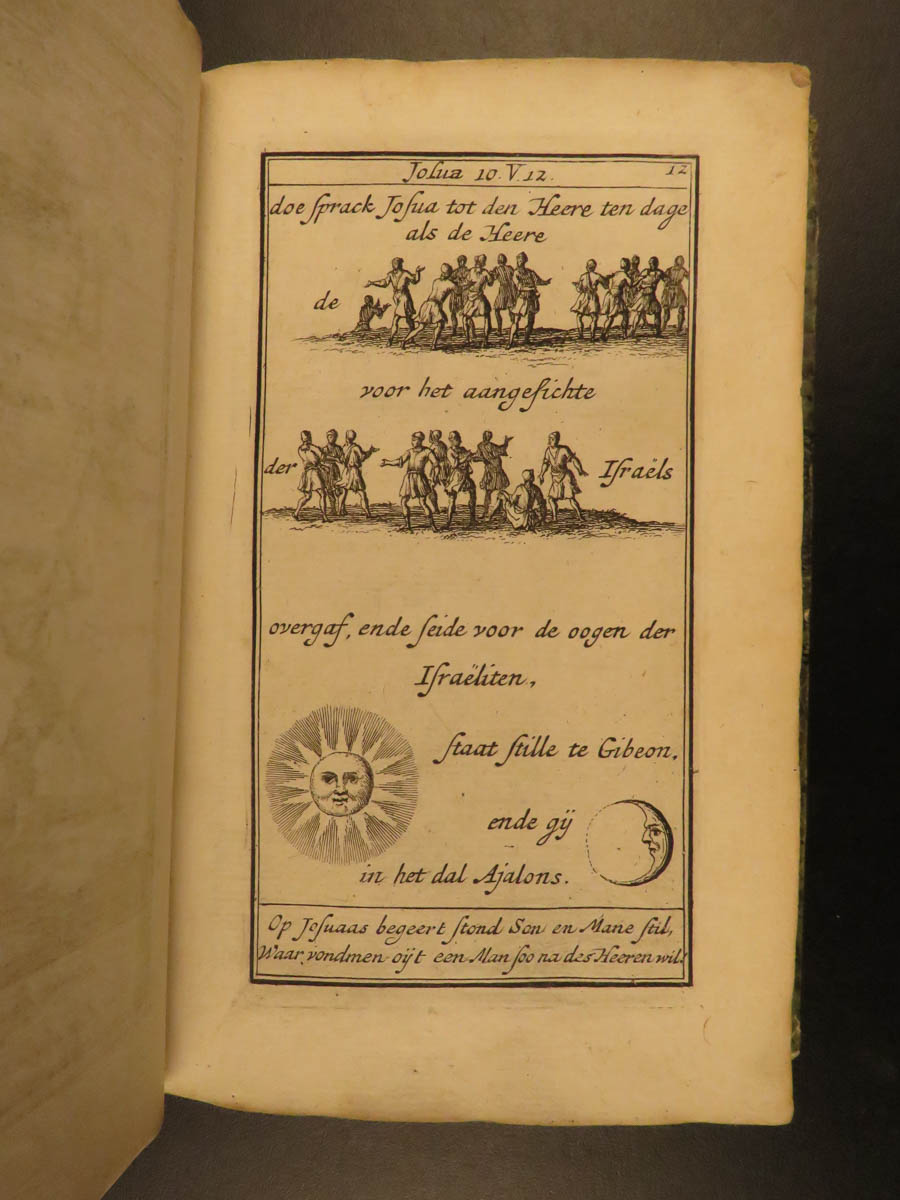 Joſua 10. V. 12. 12
doe ſprack Joſua tot den Heere ten dage
als de Heere
de
voor het aangeſichte
der Iſraëls
overgaf, ende ſeide voor de oogen der
Iſraëliten,
ſtaat ſtille te Gibeon,
ende gÿ
in het dal Ajalons.
Op Joſuaas begeert ſtond Son en Mane ſtil,
Waar vondmen oÿt een Man ſoo na des Heeren wil!